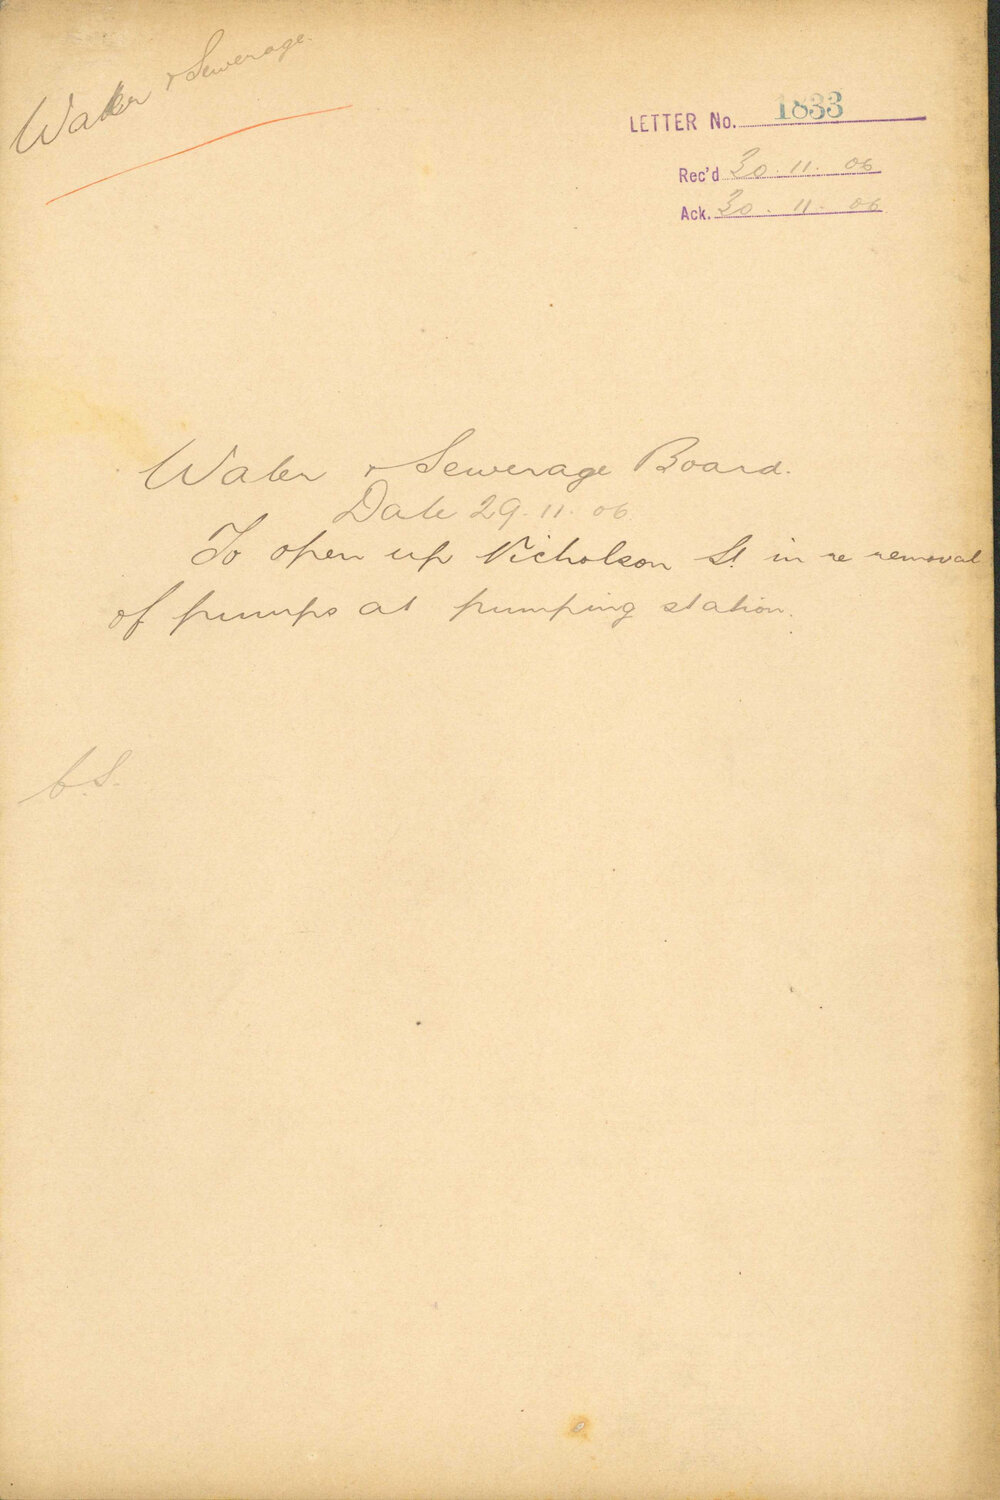 Water & Sewerage.
LETTER No. 1833
Rec'd 30. 11. 06
Ack. 30. 11. 06
Water & Sewerage Board.
Date 29. 11. 06
To open up Nicholson St. in re removal
of pumps at pumping station.